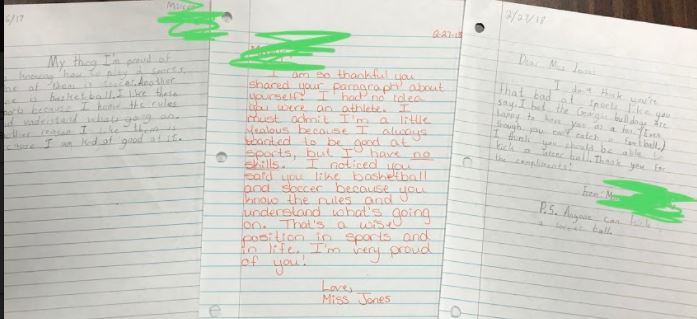 6/17
My thing I'm proud of
knowing how to play a sports,
one of them is soccer. Another
one is basketball. I like these
because I know the rules
and understand whats going on.
reason I like them is
because I am kind of good at it.
2-27-18
I am so thankful you
shared your paragraph about
yourself! I had no idea
you were an athlete. I
must admit I'm a little
jealous because I always
wanted to be good at
sports, but I have no
skills. I noticed you
said you like basketball
and soccer because you
know the rules and
understand what's going
on. That's a wise
position in sports and
in life. I'm very proud
of you!
Love,
Miss Jones
2/27/18
Dear Miss Jones
I don't think you're
that bad at sports like you
say. I bet the Georgia bulldogs are
happy to have you as a fan. (Even
though you can't catch a football.)
I think you should be able to
kick a soccer ball. Thank you for
the compliments!
From:
P.S. Anyone can kick
a soccer ball.